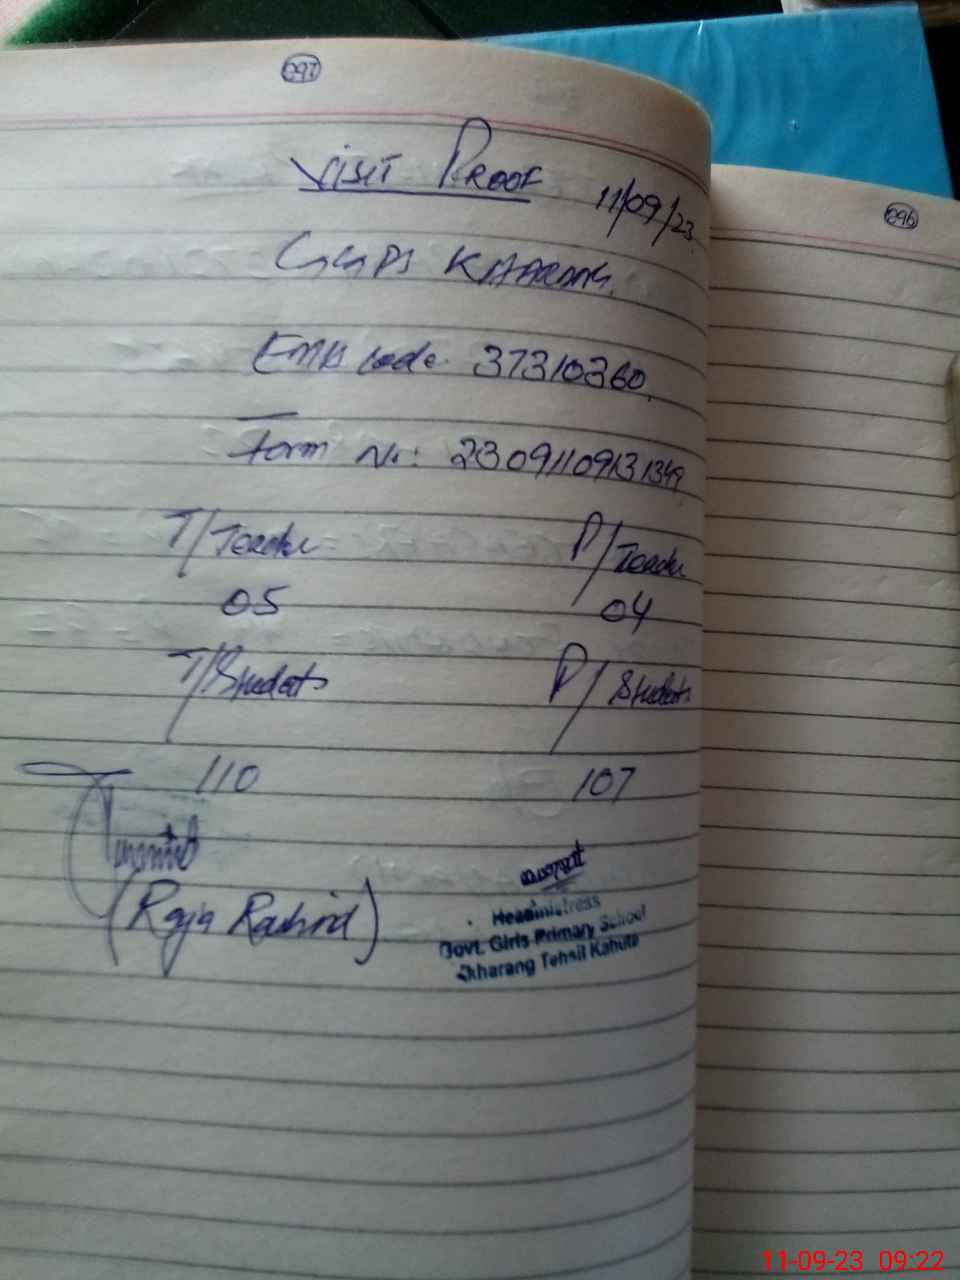 097
VISIT PROOF 11/09/23
GGPS KHARANG.
EMIS Code. 37310360.
Form No: 23091109131349
T/Teacher P/Teacher
05 04
T/Students P/Students
110 107
(Raja Rashid)
Headmistress
Govt. Girls Primary School
Kharang Tehsil Kahuta
096
11-09-23 09:22